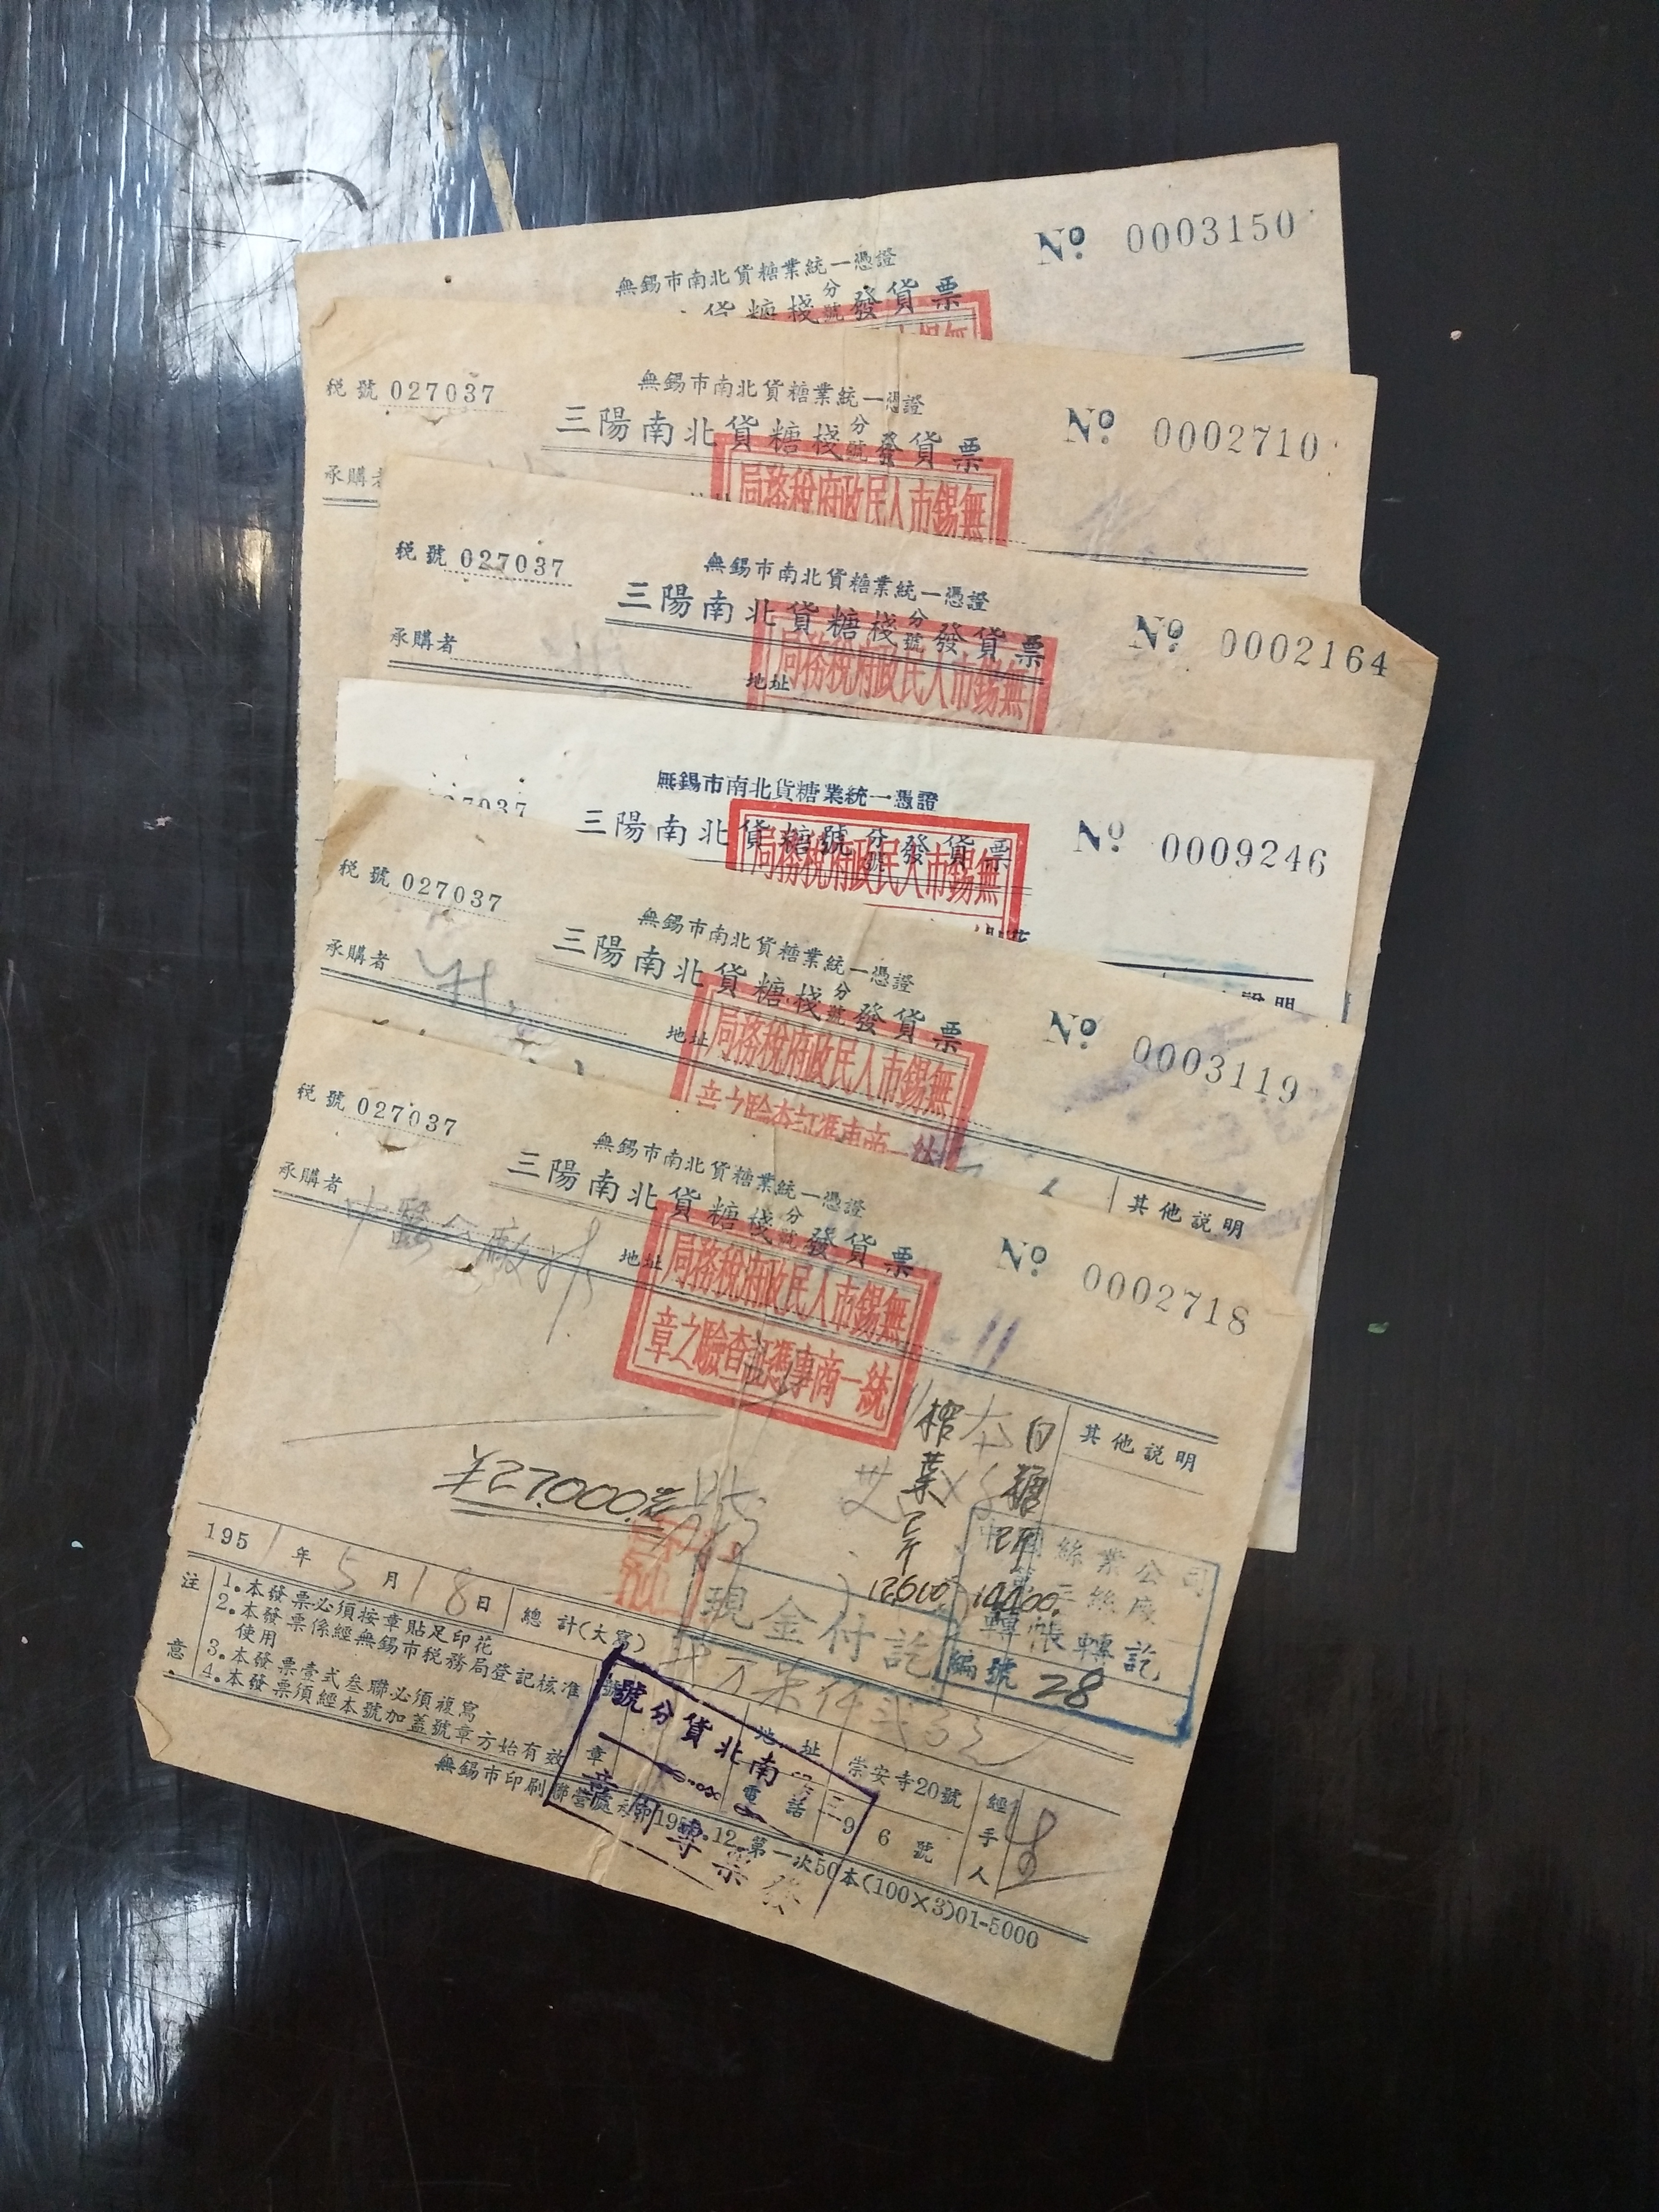 無錫市南北貨糖業統一憑證
№ 0003150
貨糖棧分號發貨票
稅號 027037
無錫市南北貨糖業統一憑證
№ 0002710
三陽南北貨糖棧分號發貨票
承購者
無錫市人民政府稅務局
稅號 027037
無錫市南北貨糖業統一憑證
№ 0002164
三陽南北貨糖棧分號發貨票
承購者
地址
無錫市人民政府稅務局
無錫市南北貨糖業統一憑證
№ 0009246
27037
三陽南北貨糖號分號發貨票
無錫市人民政府稅務局
說明
稅號 027037
無錫市南北貨糖業統一憑證
№ 0003119
三陽南北貨糖棧分號發貨票
承購者
地址
無錫市人民政府稅務局
其他說明
稅號 027037
無錫市南北貨糖業統一憑證
№ 0002718
三陽南北貨糖棧分號發貨票
承購者
地址
無錫市人民政府稅務局
統一商專憑証查驗之章
其他說明
白糖
¥27.000.元
12600
14400.
絲業公司
絲廠
轉帳轉訖
編號 28
現金付訖
1951年5月18日
總計(大寫)
注意
1.本發票必須按章貼足印花
2.本發票係經無錫市稅務局登記核准
使用
3.本發票壹式叁聯必須複寫
4.本發票須經本號加蓋號章方始有效
號章
南北貨分號
地址
崇安寺20號
電話
6號
經手人
無錫市印刷聯營處
12.第一次50本(100×3)01-5000